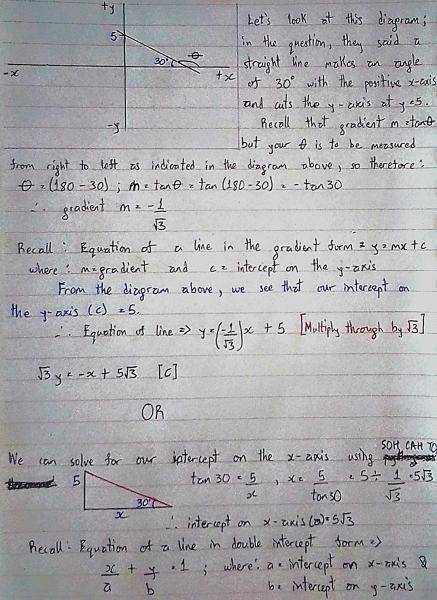 +y
5
30°
θ
-x
+x
-y
Let's look at this diagram;
in the question, they said a
straight line makes an angle
of 30° with the positive x-axis
and cuts the y-axis at y=5.
Recall that gradient m=tanθ
but your θ is to be measured
from right to left as indicated in the diagram above, so therefore:
θ = (180-30) ; m=tanθ = tan (180-30) = -tan30
∴ gradient m = -1/√3
Recall: Equation of a line in the gradient form = y=mx+c
where: m=gradient and c= intercept on the y-axis
From the diagram above, we see that our intercept on
the y-axis (c) =5.
∴ Equation of line => y=(-1/√3)x + 5 [Multiply through by √3]
√3y = -x + 5√3 [C]
OR
We can solve for our intercept on the x-axis using SOH, CAH TO
5
30°
x
tan 30 = 5/x , x = 5/tan30 = 5÷1/√3 =5√3
∴ intercept on x-axis (a)=5√3
Recall: Equation of a line in double intercept form =>
x/a + y/b = 1 ; where: a= intercept on x-axis &
b= intercept on y-axis